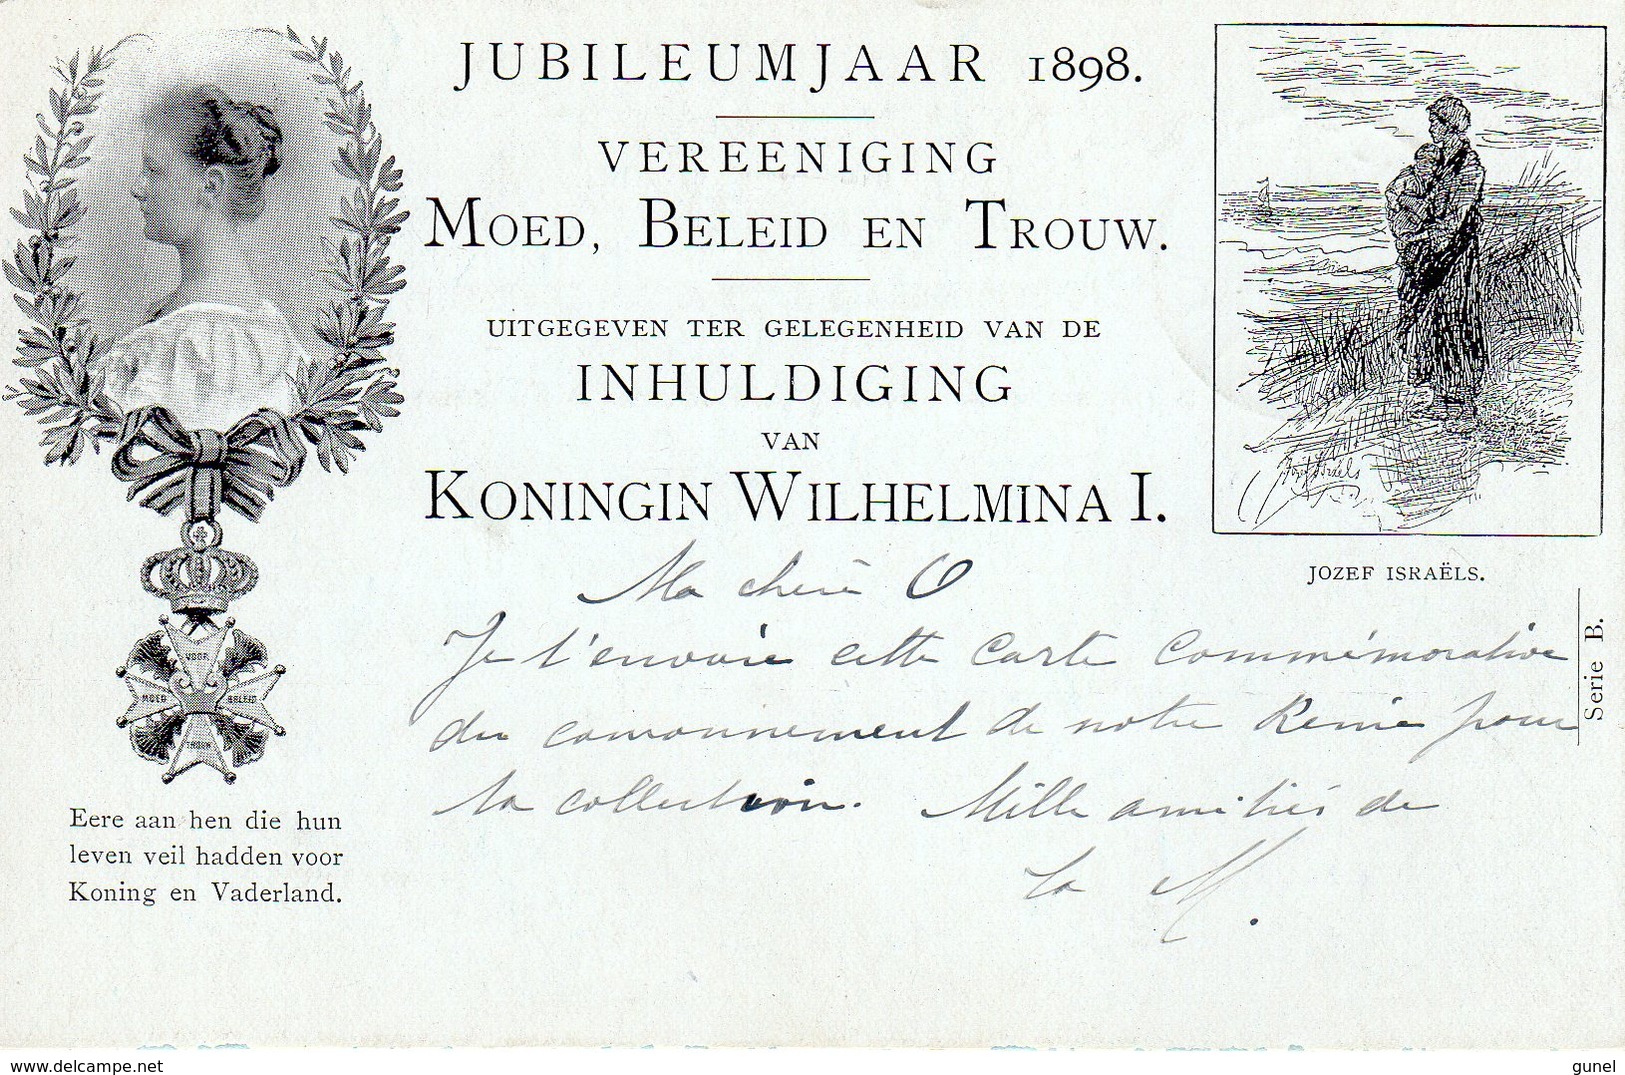 JUBILEUMJAAR 1898.
VEREENIGING
MOED, BELEID EN TROUW.
UITGEGEVEN TER GELEGENHEID VAN DE
INHULDIGING
VAN
KONINGIN WILHELMINA I.
Jozef Israëls
JOZEF ISRAËLS.
Serie B.
VOOR
MOED
BELEID
TROUW
Eere aan hen die hun
leven veil hadden voor
Koning en Vaderland.
Ma chère O
Je t'envoie cette carte commémorative
du couronnement de notre Reine pour
ta collection. Mille amitiés de
ta M.
www.delcampe.net
gunel